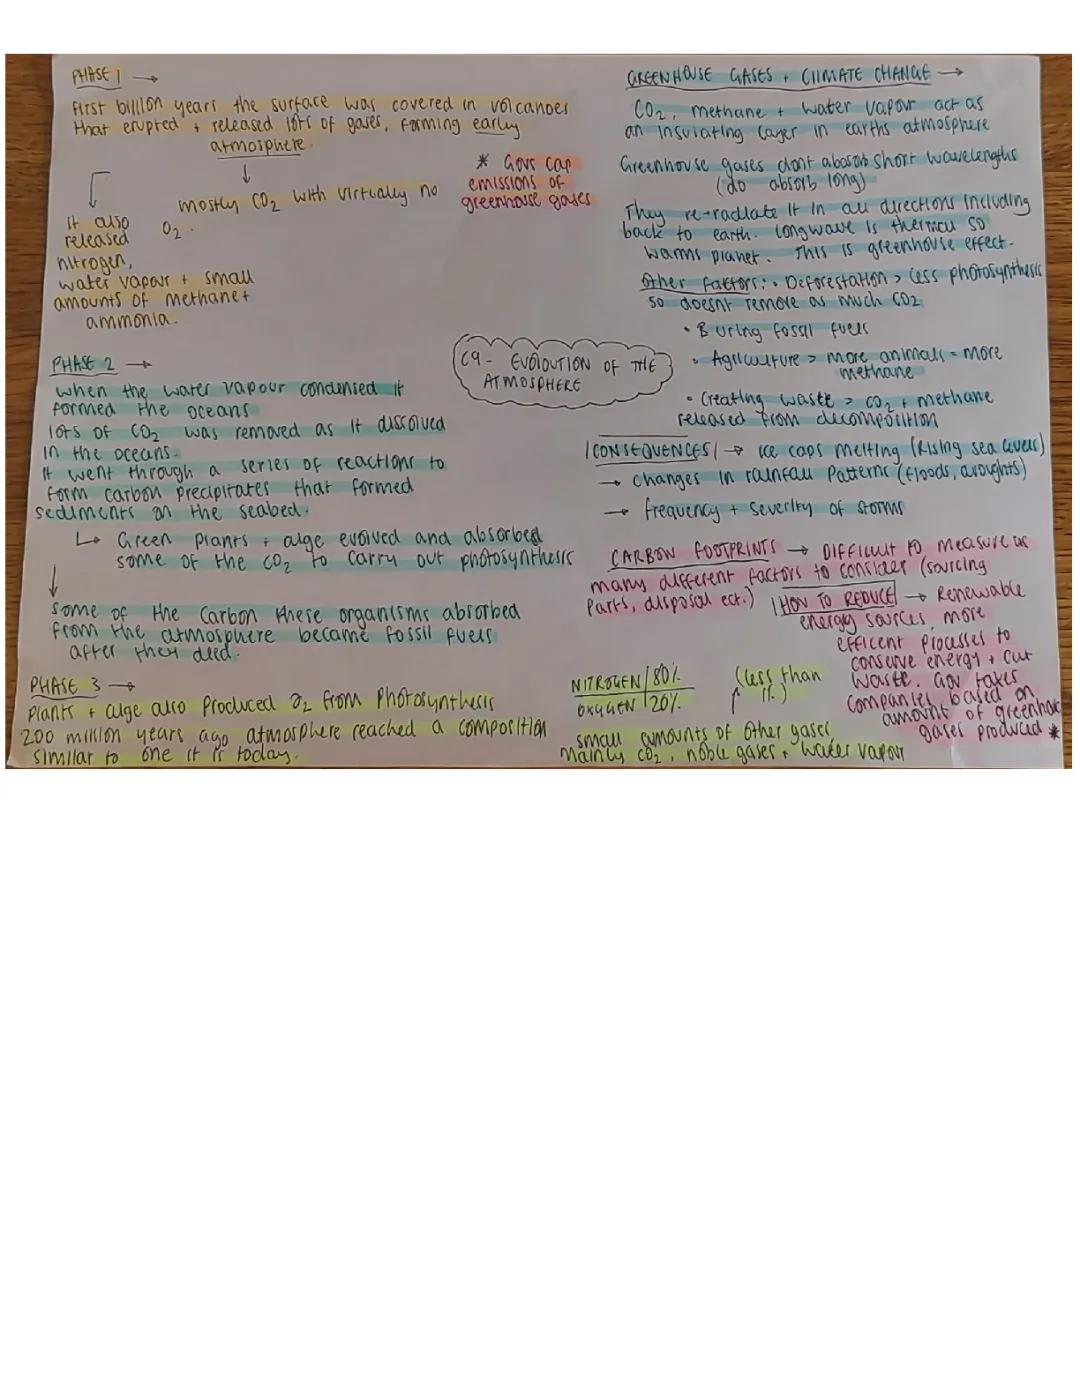 PHASE 1 →
First billion years the surface was covered in volcanoes
that erupted + released lots of gases, forming early
atmosphere.
mostly CO2 with virtually no
O2.
it also
released
nitrogen,
water vapour + small
amounts of methane +
ammonia.
* Govs cap
emissions of
greenhouse gases
PHASE 2 →
When the water vapour condensed it
formed the oceans
lots of CO2 was removed as it dissolved
in the oceans.
it went through a series of reactions to
form carbon precipitates that formed
sediments on the seabed.
↳ Green plants + alge evolved and absorbed
some of the CO2 to carry out photosynthesis
↓
Some of the Carbon these organisms absorbed
from the atmosphere became fossil fuels
after they died.
PHASE 3 →
Plants + alge also produced O2 from Photosynthesis
200 million years ago atmosphere reached a composition
similar to one it is today.
C9 - EVOLOUTION OF THE
ATMOSPHERE
GREENHOUSE GASES + CLIMATE CHANGE →
CO2, methane + water vapour act as
an insulating layer in earths atmosphere
Greenhouse gases dont abasorb short wavelengths
(do absorb long)
They re-radiate it in all directions including
back to earth. longwave is thermal so
warms planet. This is greenhouse effect.
Other factors: • Deforestation > less photosynthesis
so doesnt remove as much CO2
• Buring fossil fuels
• Agriculture > more animals = more
methane
• Creating waste > CO2 + methane
released from decomposition
|CONSEQUENCES| → ice caps melting (Rising sea levels)
→ changes in rainfall Patterns (floods, droughts)
→ frequency + severity of storms
CARBON FOOTPRINTS → DIFFICULT to measure as
many different factors to consider (sourcing
Parts, disposal ect.)
|HOW TO REDUCE| → Renewable
energy sources, more
efficent processes to
conserve energy + cut
waste. Gov taxes
companies based on
amount of greenhouse
gases produced *
NITROGEN | 80%
OXYGEN | 20%
(less than
1%)
small amounts of other gases
mainly CO2, noble gases + water vapour